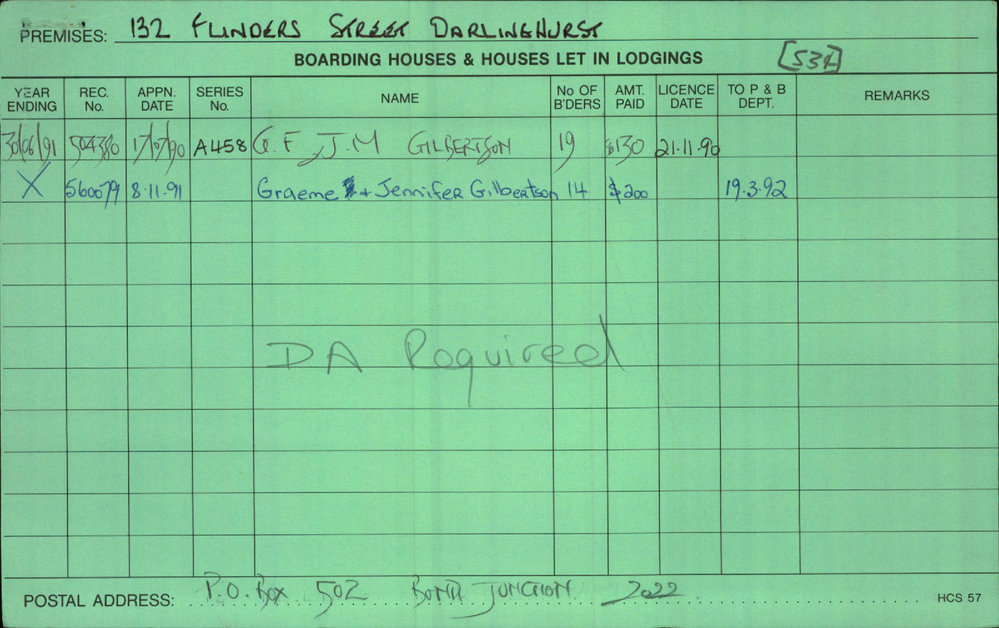 PREMISES: 132 FLINDERS STREET DARLINGHURST
BOARDING HOUSES & HOUSES LET IN LODGINGS [534]
YEAR ENDING REC. No. APPN. DATE SERIES No. NAME No OF B'DERS AMT. PAID LICENCE DATE TO P & B DEPT. REMARKS
30/06/91 504380 17/07/90 A1458 G.F & J.M GILBERTSON 19 $130 21.11.90
X 560079 8.11.91 Graeme + Jennifer Gilbertson 14 $200 19.3.92
DA Required
POSTAL ADDRESS: P.O. Box 502 BONDI JUNCTION 2022
HCS 57